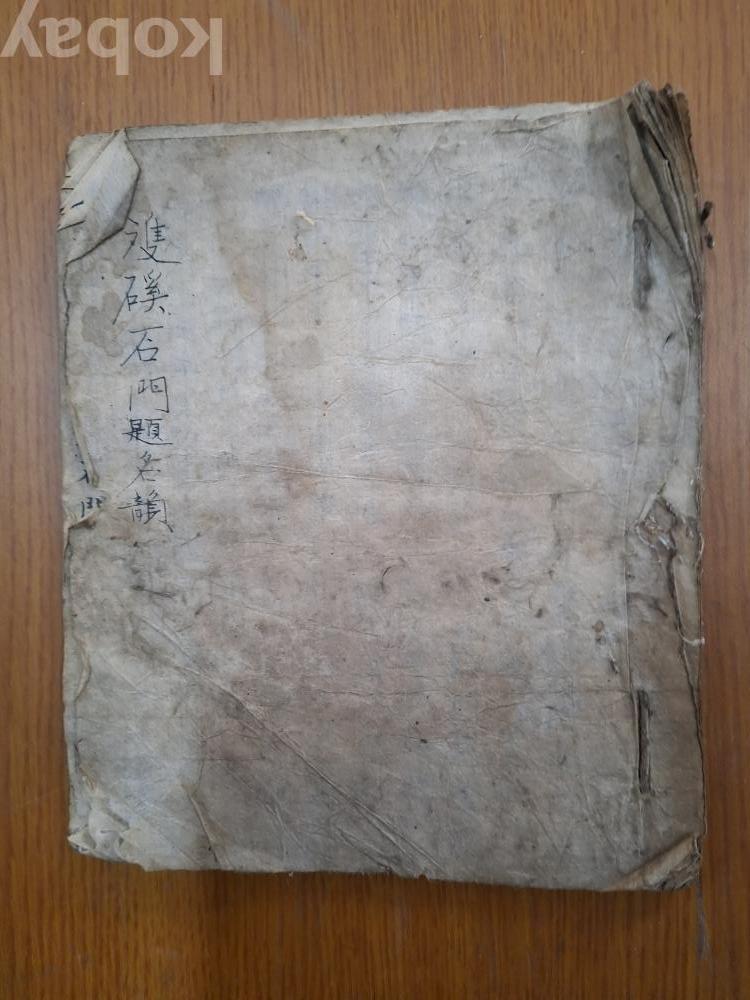 kobay
雙磎石門題名韻